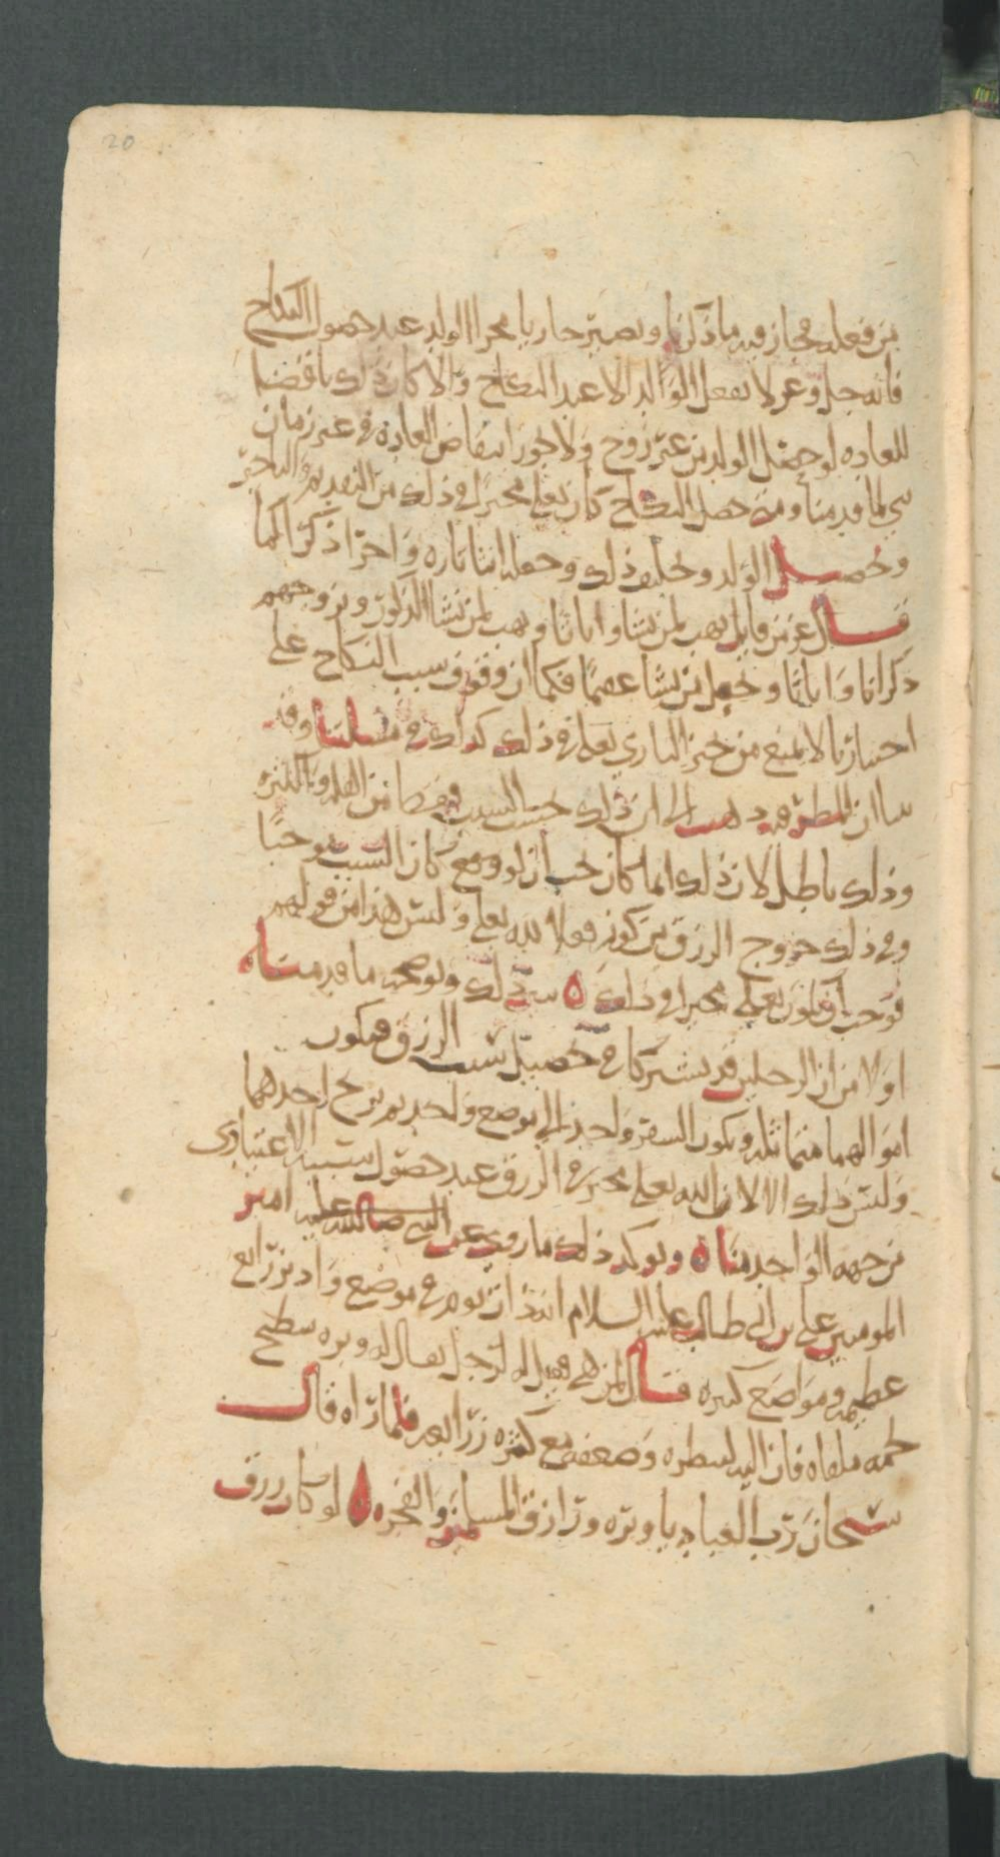 20
من فعله فجاز فيه ما ذكرنا ويصير جاريا مجرا الولد عند حصول النكاح
فانه جل وعز لا يفعل الولد الا عند النكاح والا كان ذلك ناقضا
للعاده لو حصل الولد من غير زوج ولا يجوز انتقاض العاده في غير زمان
نبي لما قدمنا ومتى حصل النكاح كان تعلى مخيرا في ذلك من التقديم والتاخير
وتحصيل الولد وخلاف ذلك وجعله انثا تاره واخرا ذكرا كما
قال عز من قايل يهب لمن يشا اناثا ويهب لمن يشا الذكور او يزوجهم
ذكرانا واناثا ويجعل من يشا عقيما فكما ان وقوف سبب النكاح على
اختيارنا لا يمنع من خيرة الباري تعلى في ذلك كذلك في مسلتنا
ان المطرفيه ذهبت الى ان ذلك حسب السبب من القله والكثره
وذلك باطل لان ذلك انما كان يجب ان لو كان السبب موجبا
وفي ذلك خروج الرزق من كونه فعلا لله تعلى وليس هذا من قولهم
فوجب ان يكون تعلى مخيرا في ذلك ه يبين ذلك ويوضحه ما قدمناه
اولا من ان الرجلين قد يشتركا في تحصيل سبب الرزق فيكون
اموالهما متماثله ويكون السفر واحد الى موضع واحد ثم يربح احدهما
وليس ذلك الا لان الله تعلى مخير في الرزق عند حصول سببه الاعتيادي
من جهة الواحد منا ه ويوكد ذلك ما روي عن امير
المومنين علي بن ابي طالب عليه السلام انه في موضع
عظيمه ومواضع كثيره فقال لمن هي فقيل له لرجل يقال له وبره
فلما راه قال
سبحان رب العباد يا وبره ورازق المسلمين والفجره ه لو كان رزق